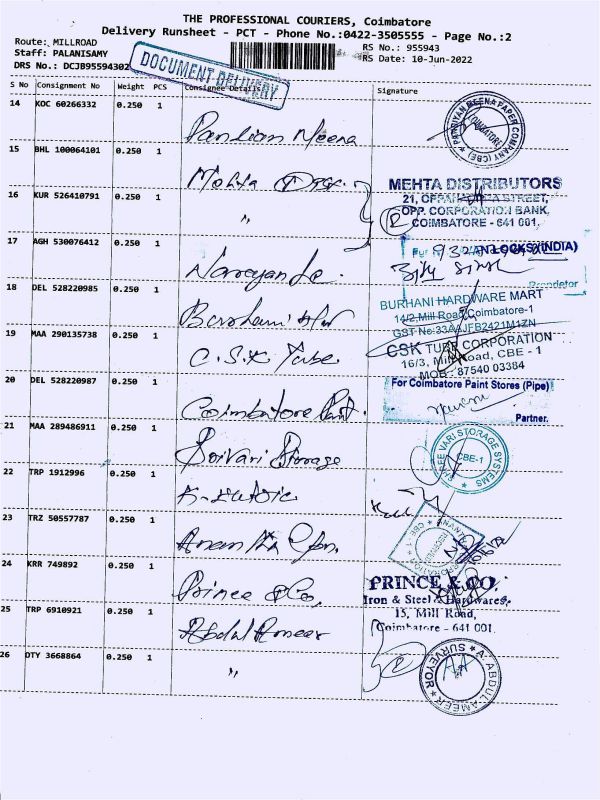 THE PROFESSIONAL COURIERS, Coimbatore
Delivery Runsheet - PCT - Phone No.:0422-3505555 - Page No.:2
Route: MILLROAD
RS No.: 955943
Staff: PALANISAMY
RS Date: 10-Jun-2022
DRS No.: DCJB95594302
DOCUMENT DELIVERY
S No Consignment No Weight PCS Consignee Details Signature
14 KOC 60266332 0.250 1 Pandian Meena
PANDIYAN MEENA PAPER COMPANY (CBE)
COIMBATORE
15 BHL 100064101 0.250 1 Mehta
MEHTA DISTRIBUTORS
STREET,
OPP. CORPORATION BANK,
COIMBATORE - 641 001.
16 KUR 526410791 0.250 1 "
2
17 AGH 530076412 0.250 1
LOCKS (INDIA)
Proprietor
18 DEL 528220985 0.250 1 Burhani
BURHANI HARDWARE MART
14/2, Mill Road, Coimbatore-1
GST No:33AAJFB2421M1ZN
19 MAA 290135738 0.250 1 C.S.K Tube
CSK TUBE CORPORATION
16/3, Mill Road, CBE - 1
MOB : 87540 03384
20 DEL 528220987 0.250 1 Coimbatore Paint.
For Coimbatore Paint Stores (Pipe)
Partner.
21 MAA 289486911 0.250 1 Srivari Storage
SHREE VARI STORAGE SYSTEMS
CBE-1
22 TRP 1912996 0.250 1
23 TRZ 50557787 0.250 1
24 KRR 749892 0.250 1 Prince & Co,
PRINCE & CO.
Iron & Steel & Hardwares,
15, Mill Road,
Coimbatore - 641 001.
25 TRP 6910921 0.250 1 Abdul Ameer
26 DTY 3668864 0.250 1 "
2
A. ABDUL AMEER
SURVEYOR